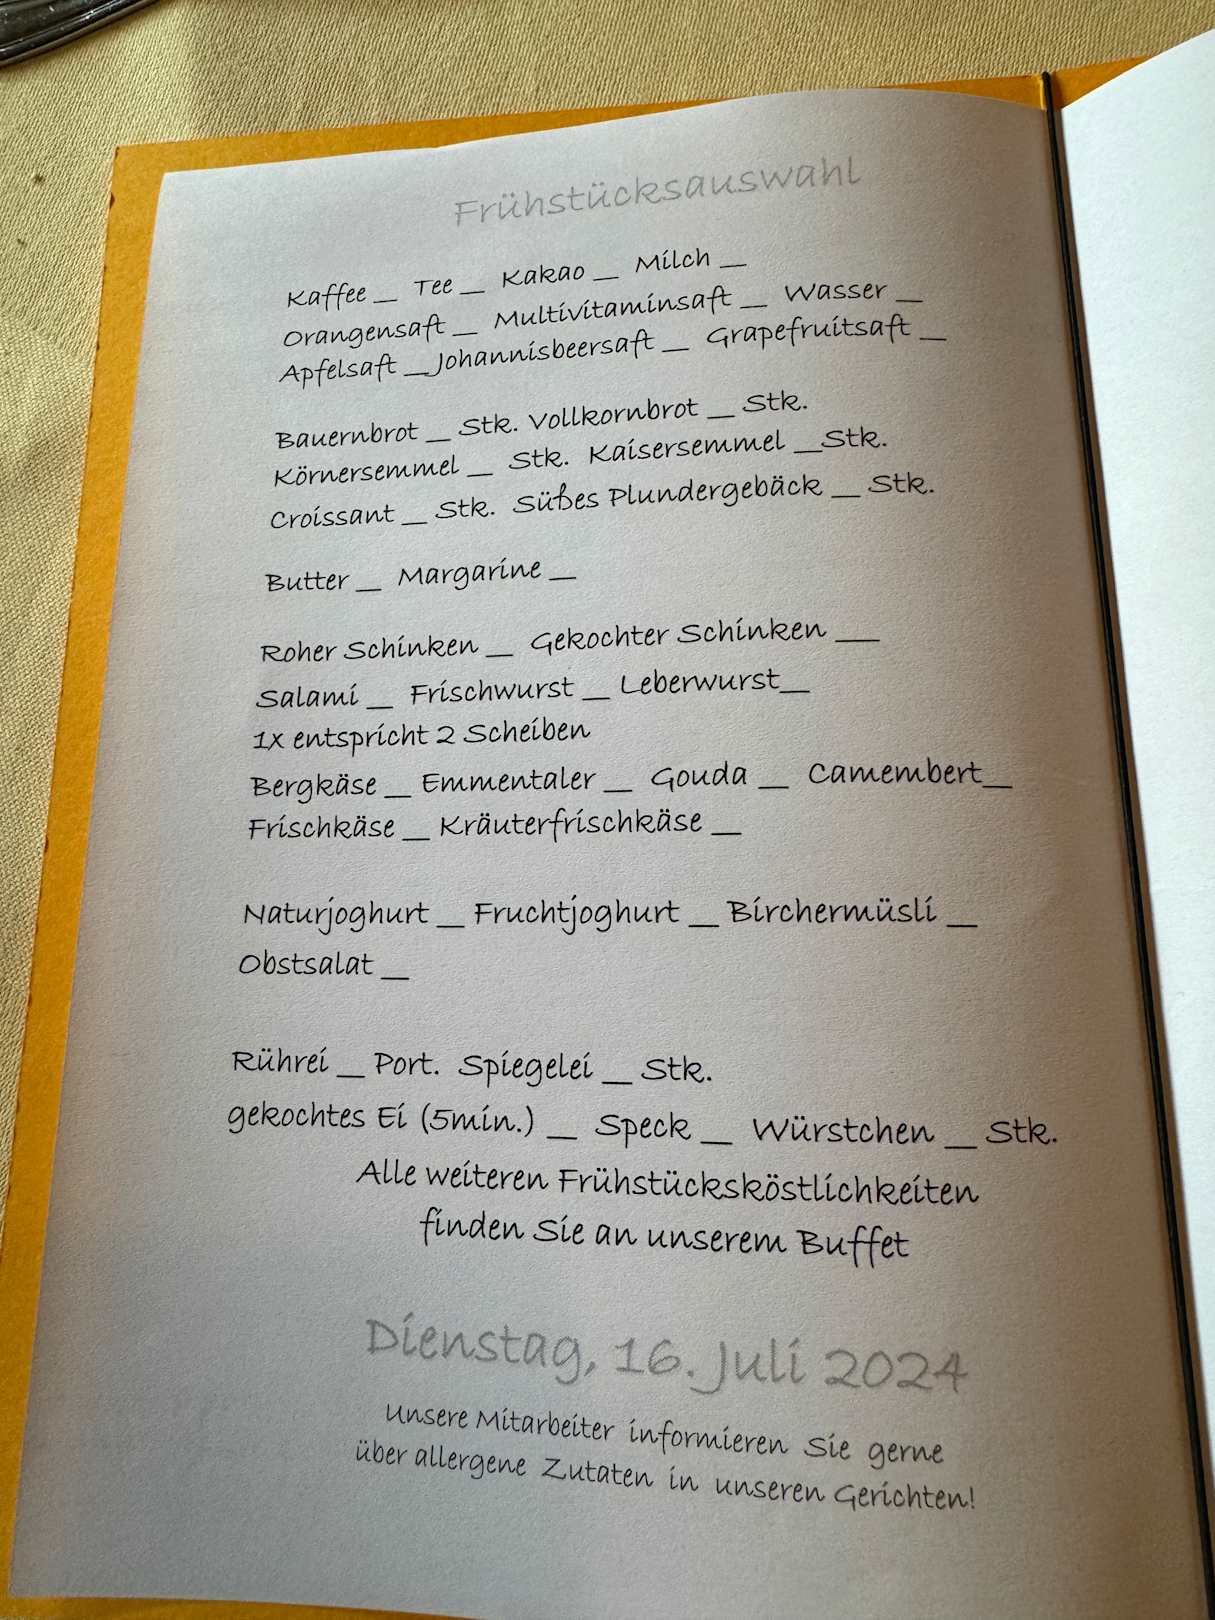 Frühstücksauswahl
Kaffee __ Tee __ Kakao __ Milch __
Orangensaft __ Multivitaminsaft __ Wasser __
Apfelsaft __ Johannisbeersaft __ Grapefruitsaft __
Bauernbrot __ Stk. Vollkornbrot __ Stk.
Körnersemmel __ Stk. Kaisersemmel __ Stk.
Croissant __ Stk. Süßes Plundergebäck __ Stk.
Butter __ Margarine __
Roher Schinken __ Gekochter Schinken ___
Salami __ Frischwurst __ Leberwurst__
1x entspricht 2 Scheiben
Bergkäse __ Emmentaler __ Gouda __ Camembert__
Frischkäse __ Kräuterfrischkäse __
Naturjoghurt __ Fruchtjoghurt __ Birchermüsli __
Obstsalat __
Rührei __ Port. Spiegelei __ Stk.
gekochtes Ei (5min.) __ Speck __ Würstchen __ Stk.
Alle weiteren Frühstücksköstlichkeiten
finden Sie an unserem Buffet
Dienstag, 16. Juli 2024
Unsere Mitarbeiter informieren Sie gerne
über allergene Zutaten in unseren Gerichten!